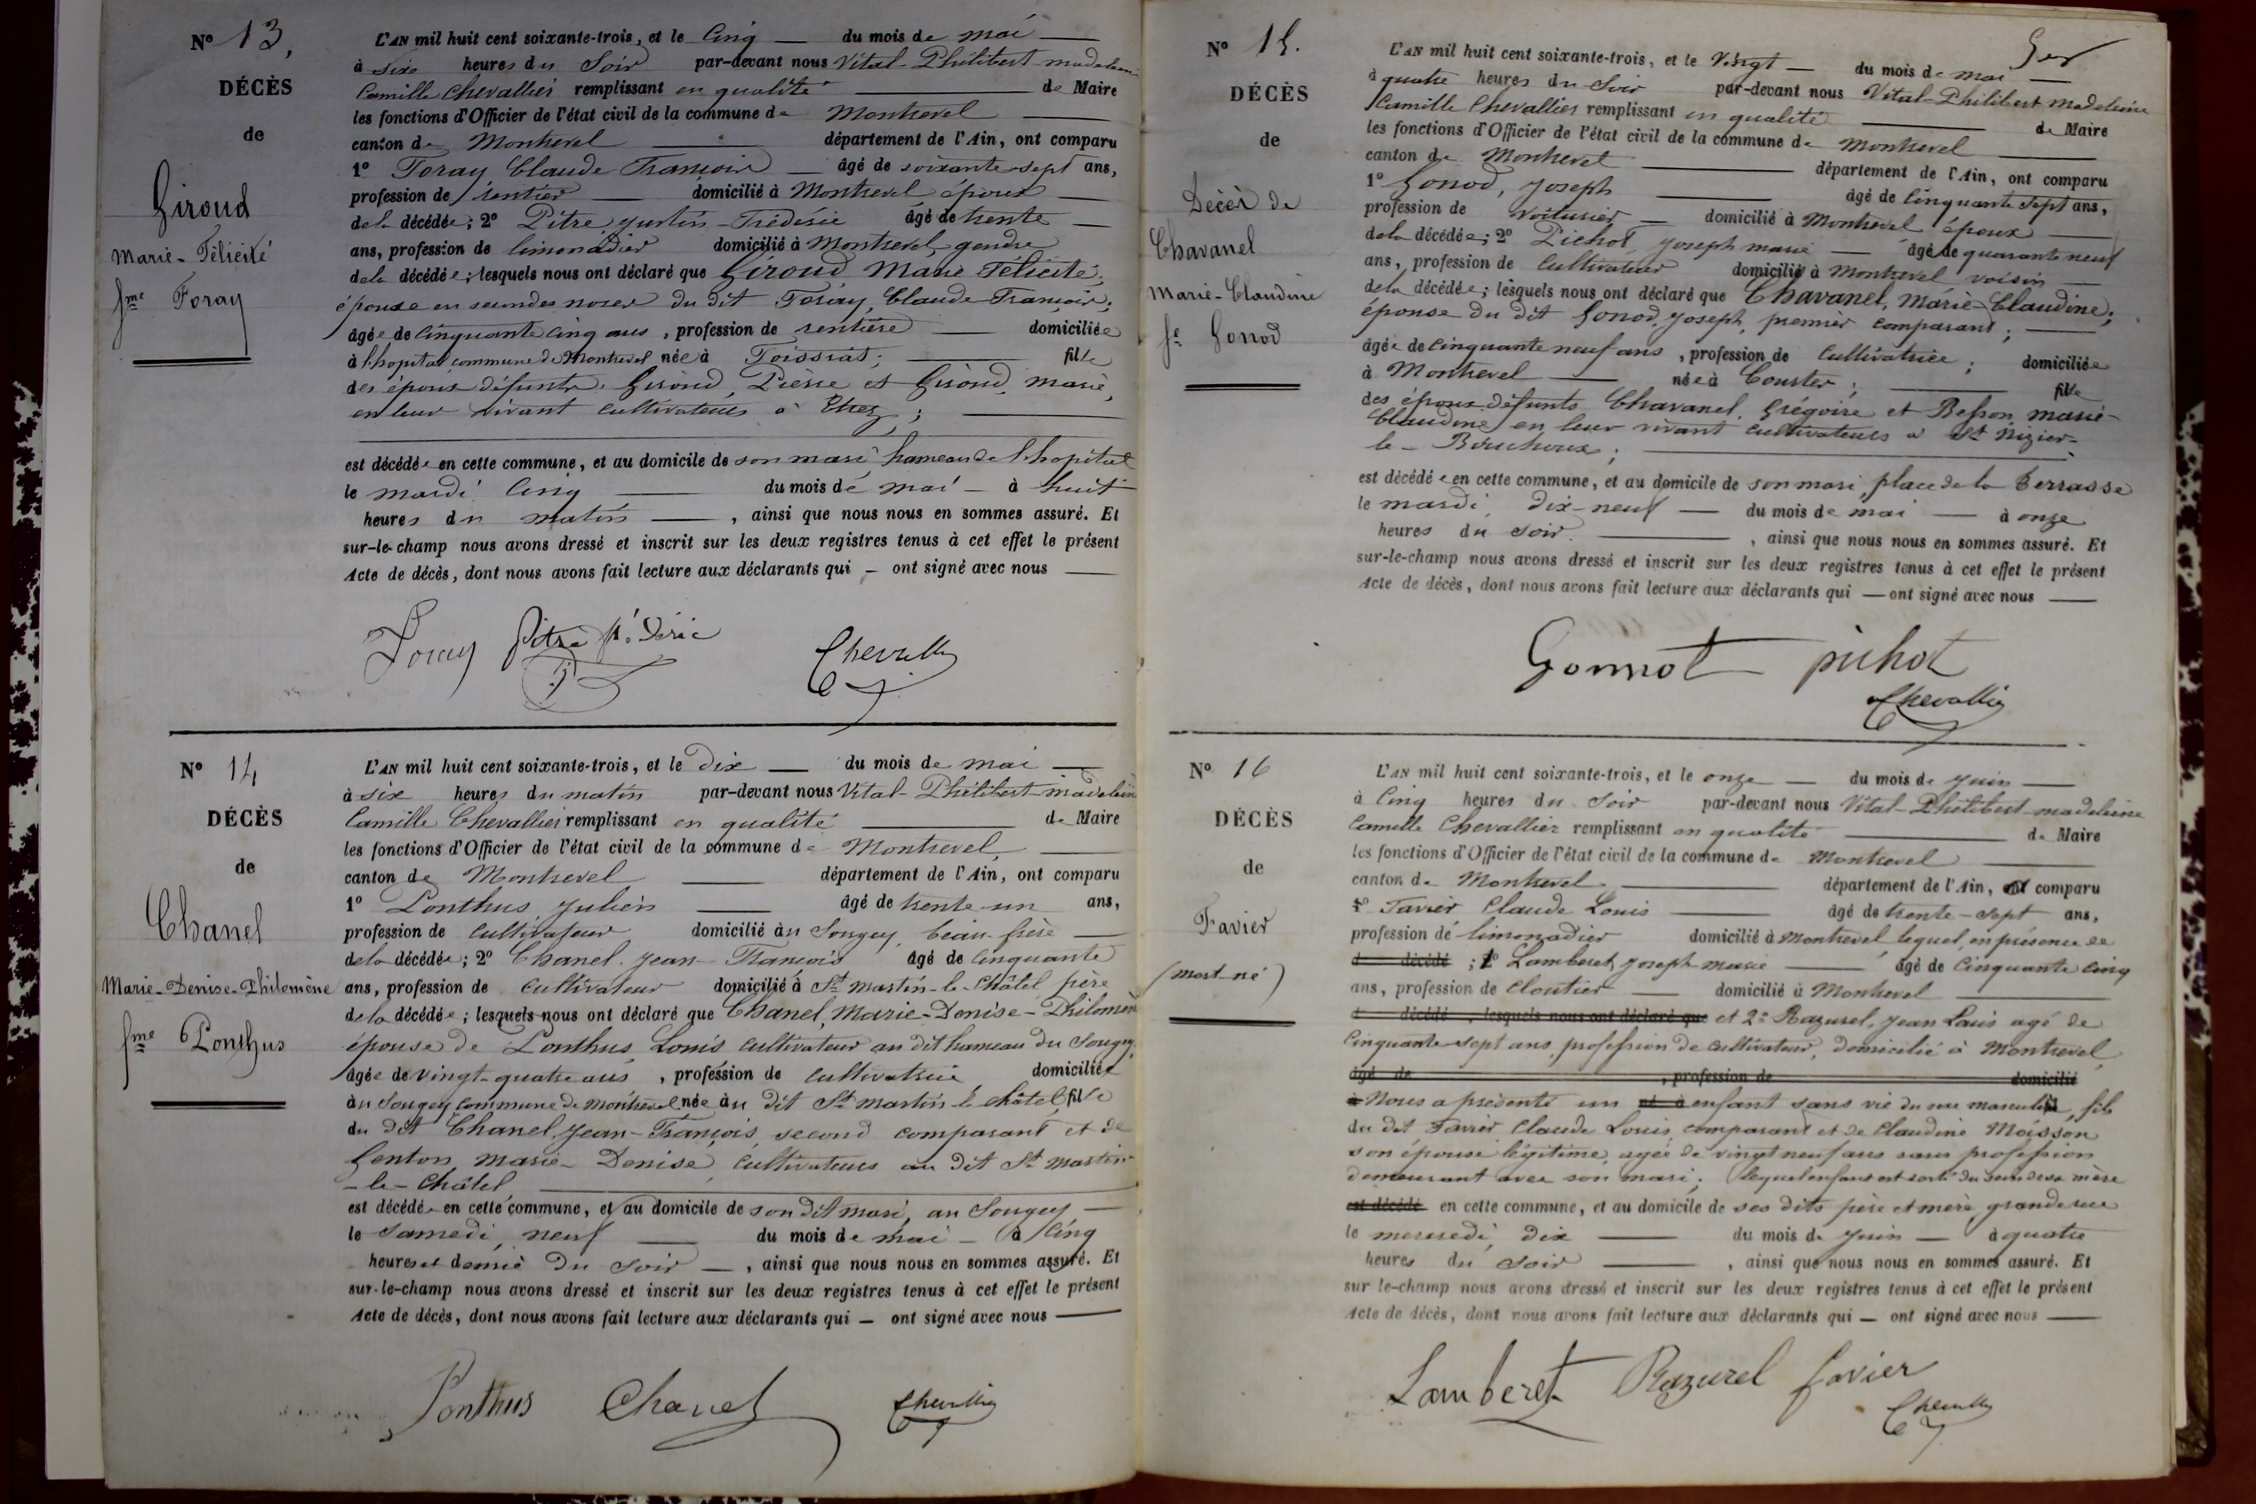 Nº 13,
DÉCÈS
de
Giroud
Marie-Félicité
fme Foray
L'AN mil huit cent soixante-trois, et le Cinq du mois de mai
à six heures du Soir par-devant nous Vital-Philibert madeleine
Camille Chevallier remplissant en qualité de Maire
les fonctions d'Officier de l'état civil de la commune de Montrevel
canton de Montrevel département de l'Ain, ont comparu
1º Foray Claude François âgé de soixante-sept ans,
profession de rentier domicilié à Montrevel époux
de la décédée; 2º Pitre Justin-Frédéric âgé de trente
ans, profession de limonadier domicilié à Montrevel, gendre
de la décédée; lesquels nous ont déclaré que Giroud Marie Félicité;
épouse en secondes noces du dit Foray, Claude-François;
âgée de cinquante cinq ans, profession de rentière domiciliée
à l'hopital commune de Montrevel née à Foissiat; fille
des époux défunts Giroud, Pierre et Giroud, marie,
en leur vivant cultivateurs à Etrez;
est décédée en cette commune, et au domicile de son mari hameau de l'hopital
le mardi cinq du mois de mai à huit
heures du matin, ainsi que nous nous en sommes assuré. Et
sur-le-champ nous avons dressé et inscrit sur les deux registres tenus à cet effet le présent
Acte de décès, dont nous avons fait lecture aux déclarants qui — ont signé avec nous
Foray Pitre frédéric Chevallier
Nº 14
DÉCÈS
de
Chanel
Marie-Denise-Philomène
fme Ponthus
L'AN mil huit cent soixante-trois, et le dix du mois de mai
à six heures du matin par-devant nous Vital-Philibert-madeleine
Camille Chevallier remplissant en qualité de Maire
les fonctions d'Officier de l'état civil de la commune de Montrevel
canton de Montrevel département de l'Ain, ont comparu
1º Ponthus Julien âgé de trente-un ans,
profession de cultivateur domicilié au Sougey, beau-frère
de la décédée; 2º Chanel Jean-François âgé de Cinquante
ans, profession de cultivateur domicilié à St martin-le-Châtel père
de la décédée; lesquels nous ont déclaré que Chanel, Marie-Denise-Philomène
épouse de Ponthus Louis cultivateur au dit hameau du Sougey,
âgée de vingt-quatre ans, profession de cultivatrice domiciliée
au Sougey commune de Montrevel née au dit St martin le châtel, fille
du dit Chanel, Jean-François, second comparant et de
Genton Marie-Denise, cultivateurs au dit St martin-
-le-Châtel
est décédée en cette commune, et au domicile de son dit mari, au Sougey
le Samedi, neuf du mois de mai à Cinq
heures et demie du soir, ainsi que nous nous en sommes assuré. Et
sur-le-champ nous avons dressé et inscrit sur les deux registres tenus à cet effet le présent
Acte de décès, dont nous avons fait lecture aux déclarants qui — ont signé avec nous
Ponthus Chanel Chevallier
Nº 15.
DÉCÈS
de
Décès de
Chavanel
Marie-Claudine
fe Gonod
L'AN mil huit cent soixante-trois, et le Vingt du mois de mai
à quatre heures du Soir par-devant nous Vital-Philibert madeleine
Camille Chevallier remplissant en qualité de Maire
les fonctions d'Officier de l'état civil de la commune de Montrevel
canton de Montrevel département de l'Ain, ont comparu
1º Gonod, Joseph âgé de Cinquante sept ans,
profession de voiturier domicilié à Montrevel époux
de la décédée; 2º Pichot, Joseph marie âgé de quarante neuf
ans, profession de Cultivateur domicilié à Montrevel voisin
de la décédée; lesquels nous ont déclaré que Chavanel, Marie-Claudine;
épouse du dit Gonod, Joseph, premier comparant;
âgée de cinquante neuf ans, profession de Cultivatrice; domiciliée
à Montrevel née à Courtes; fille
des époux défunts Chavanel, Grégoire et Besson, marie-
Claudine, en leur vivant cultivateurs à St Nizier-
le-Bouchoux;
est décédée en cette commune, et au domicile de son mari, place de la Terrasse
le mardi, dix-neuf du mois de mai à onze
heures du soir, ainsi que nous nous en sommes assuré. Et
sur-le-champ nous avons dressé et inscrit sur les deux registres tenus à cet effet le présent
Acte de décès, dont nous avons fait lecture aux déclarants qui — ont signé avec nous
Gonnot pichot
Chevallier
Nº 16
DÉCÈS
de
Favier
(mort-né)
L'AN mil huit cent soixante-trois, et le onze du mois de Juin
à Cinq heures du Soir par-devant nous Vital-Philibert-madeleine
Camille Chevallier remplissant en qualité de Maire
les fonctions d'Officier de l'état civil de la commune de Montrevel
canton de Montrevel département de l'Ain, a comparu
1º Favier Claude Louis âgé de trente-sept ans,
profession de limonadier domicilié à Montrevel lequel, en présence de
d décédé; 1º Lamberet, Joseph marie âgé de Cinquante cinq
ans, profession de Cloutier domicilié à Montrevel
d décédé, lesquels nous ont déclaré que et 2º Razurel, Jean Louis agé de
Cinquante-sept ans, profession de cultivateur, domicilié à Montrevel
âgé de , profession de domicilié
à Nous a présenté un né à enfant sans vie du sexe masculin, fils
du dit Favier Claude Louis, comparant et de Claudine Moisson
son épouse légitime, agée de vingt neuf ans sans profession
demeurant avec son mari; lequel enfant est sorti du sein de sa mère
est décédé en cette commune, et au domicile de ses dits père et mère, grande rue
le mercredi, dix du mois de Juin à quatre
heures du soir, ainsi que nous nous en sommes assuré. Et
sur-le-champ nous avons dressé et inscrit sur les deux registres tenus à cet effet le présent
Acte de décès, dont nous avons fait lecture aux déclarants qui — ont signé avec nous
Lamberet Razurel favier
Chevallier